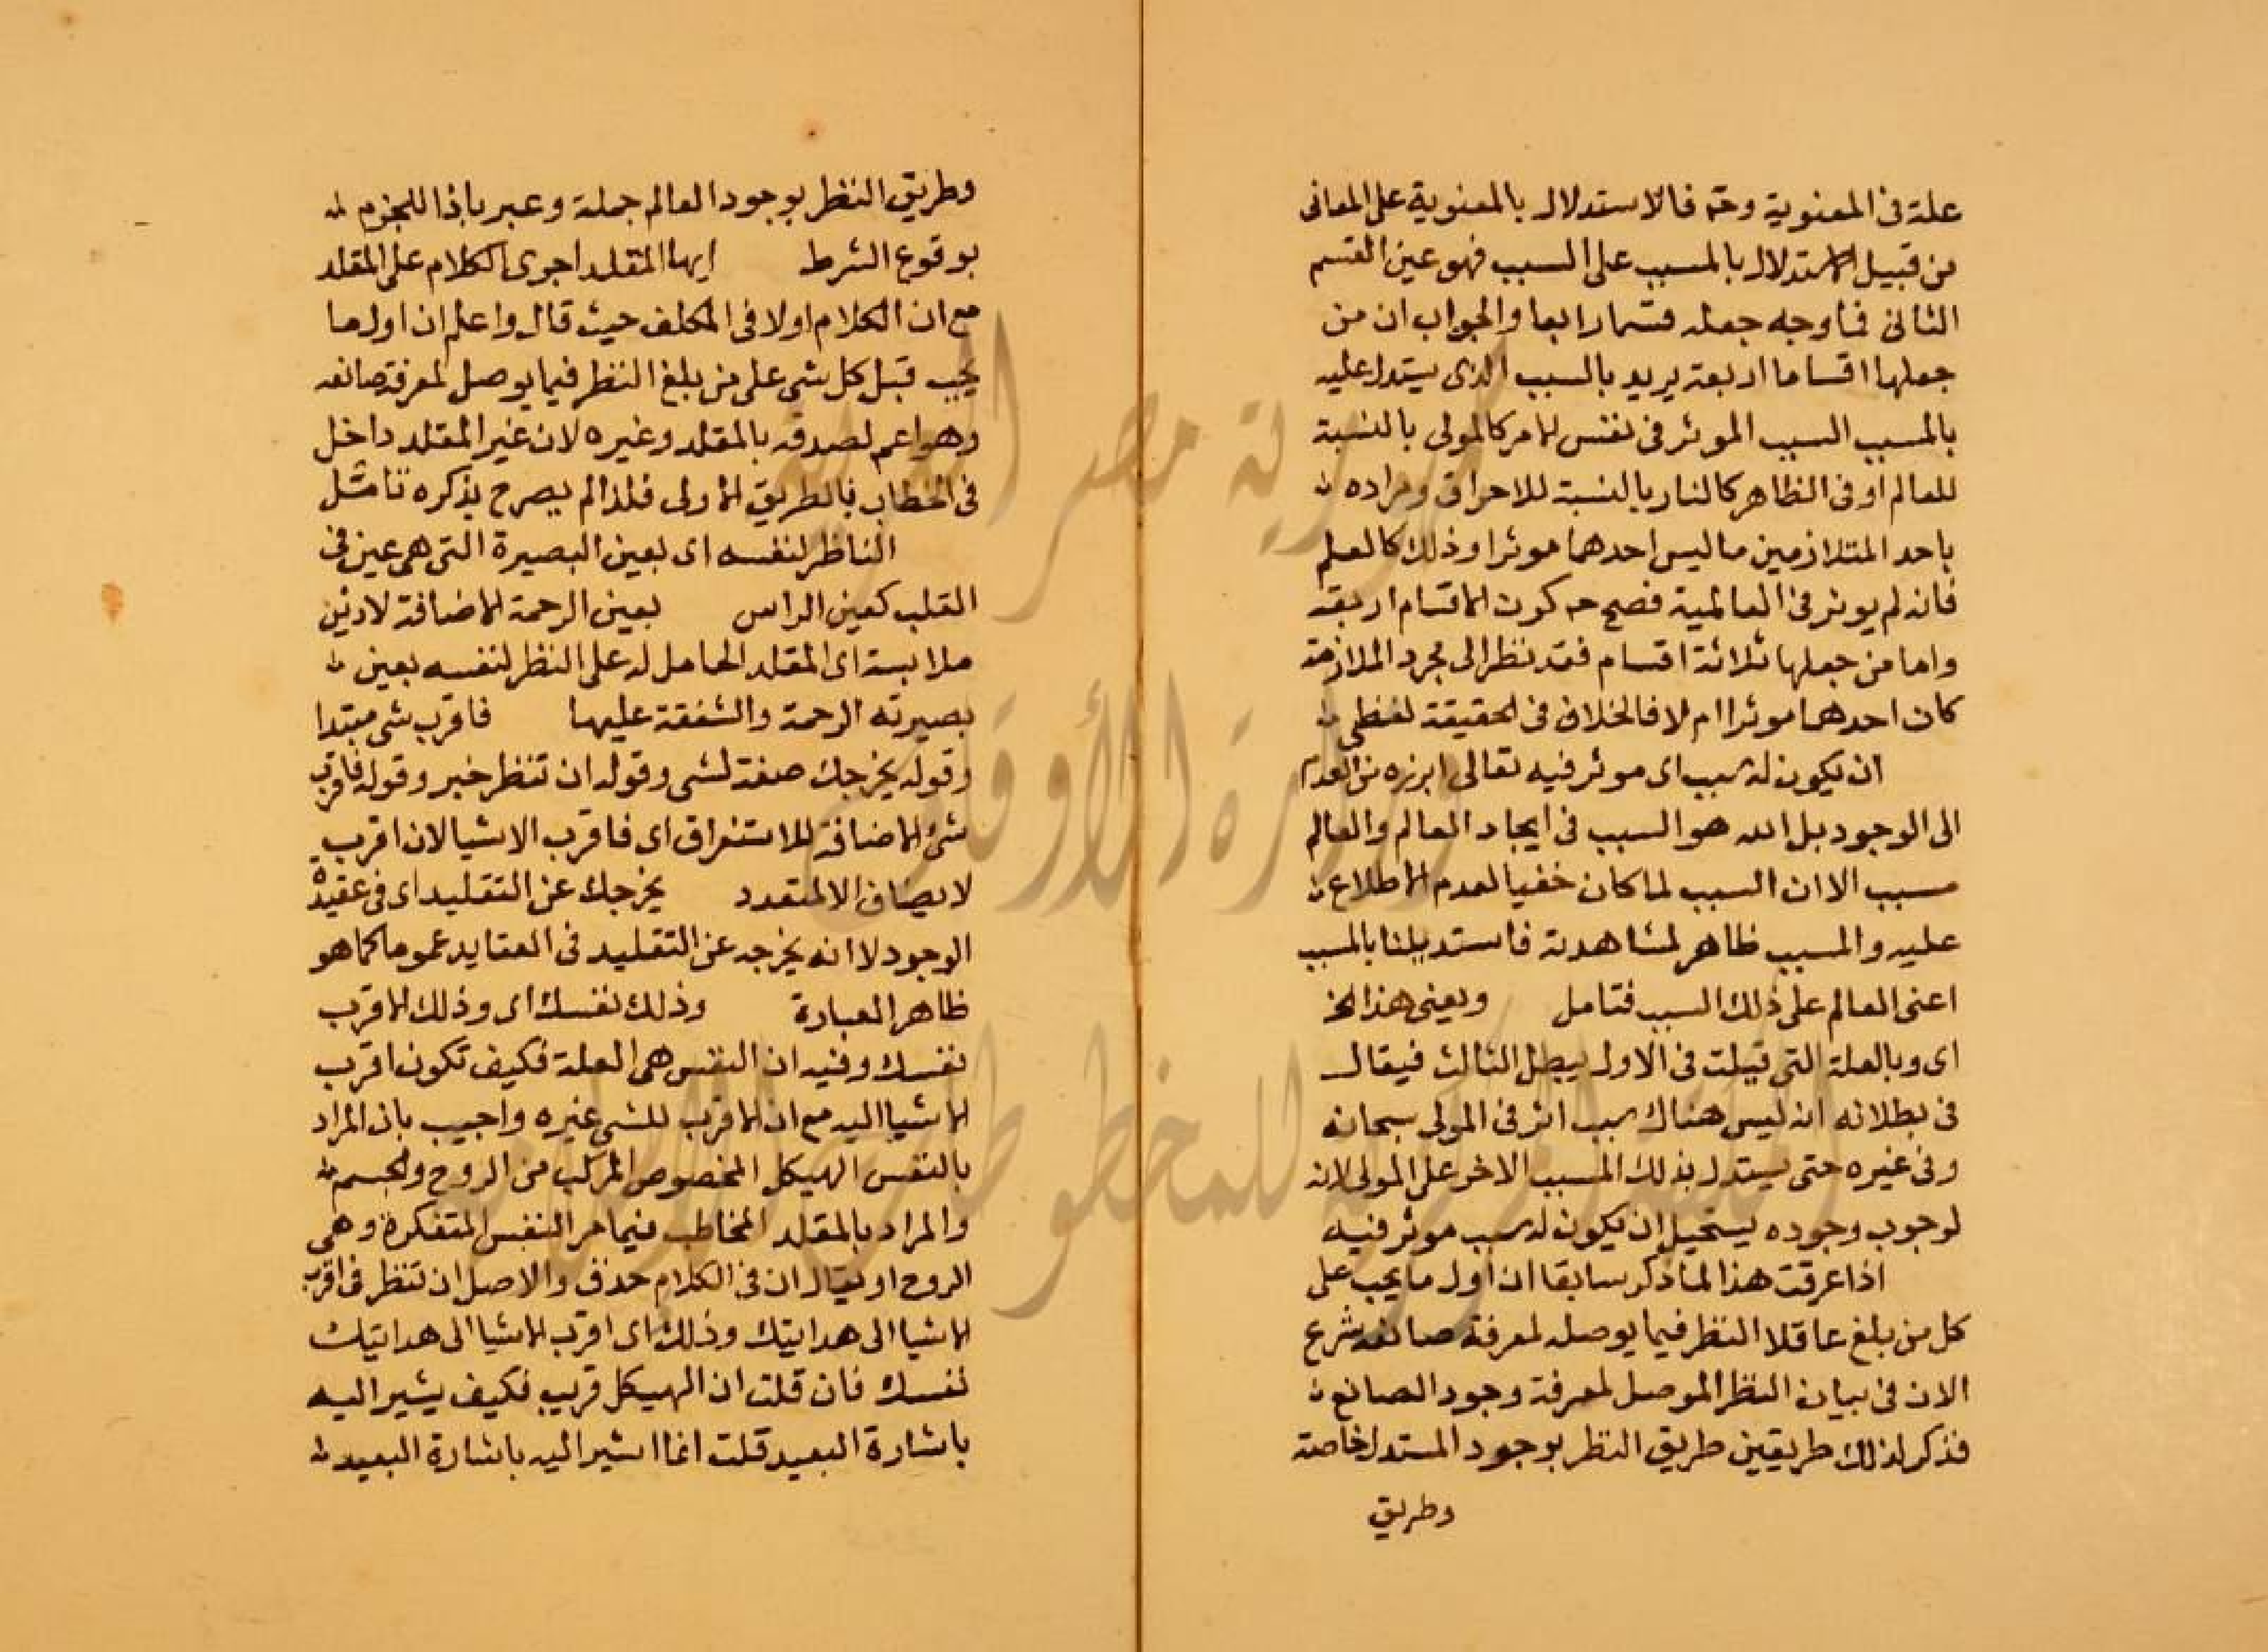 علة فى المعنوية وح فالاستدلال بالمعنوية على المعانى
من قبيل الاستدلال بالمسبب على السبب فهو عين القسم
الثانى فما وجه جعله قسما رابعا والجواب ان من
جعلها اقساما اربعة يريد بالسبب الذى يستدل عليه
بالمسبب السبب الموثر فى نفس الامر كالمولى بالنسبة
للعالم او فى الظاهر كالنار بالنسبة للاحراق ومراده
باحد المتلازمين ما ليس احدهما موثرا وذلك كالعلم
فانه لم يوثر فى العالمية فصح ح كون الاقسام اربعة
واما من جعلها ثلاثة اقسام فقد نظر الى مجرد الملازمة
كان احدهما موثرا ام لا فالخلاف فى الحقيقة لفظى
ان يكون له سبب اى موثر فيه تعالى ابرزه من العدم
الى الوجود بل الله هو السبب فى ايجاد العالم والعالم
مسبب الا ان السبب لما كان خفيا لعدم الاطلاع
عليه والمسبب ظاهر لمشاهدته فاستدللنا بالمسبب
اعنى العالم على ذلك السبب فتامل ويعنى هذا الخ
اى وبالعلة التى قيلت فى الاول يبطل الثالث فيقال
فى بطلانه انه ليس هناك سبب اثر فى المولى سبحانه
وفى غيره حتى يستدل بذلك المسبب الاخر على المولى لانه
لوجوب وجوده يستحيل ان يكون له سبب موثر فيه
اذا عرفت هذا لما ذكر سابقا ان اول ما يجب على
كل من بلغ عاقلا النظر فيما يوصله لمعرفة صانعه شرع
الان فى بيان النظر الموصل لمعرفة وجود الصانع
فذكر لذلك طريقين طريق النظر بوجود المستدل خاصة
وطريق
وطريق النظر بوجود العالم جملة وعبر باذا للجزم
بوقوع الشرط ايها المقلد اجرى الكلام على المقلد
مع ان الكلام اولا فى المكلف حيث قال واعلم ان اول ما
يجب قبل كل شى على من بلغ النظر فيما يوصل لمعرفة صانعه
وهو اعم لصدقه بالمقلد وغيره لان غير المقلد داخل
فى الخطاب بالطريق الاولى فلذا لم يصرح بذكره تامل
الناظر لنفسه اى بعين البصيرة التى هى عين فى
القلب كعين الراس بعين الرحمة الاضافة لادنى
ملابسة اى المقلد الحامل له على النظر لنفسه بعين
بصيرته الرحمة والشفقة عليها فاقرب شى مبتدا
وقوله يخرجك صفة لشى وقوله ان تنظر خبر وقوله فاقرب
شى الاضافة للاستغراق اى فاقرب الاشيا لان اقرب
لا يضاف الا لمتعدد يخرجك عن التقليد اى فى عقيدة
الوجود لا انه يخرجه عن التقليد فى العقايد عموما كما هو
ظاهر العبارة وذلك نفسك اى وذلك الاقرب
نفسك وفيه ان النفس هى العلة فكيف تكون اقرب
الاشيا اليه مع ان الاقرب للشى غيره واجيب بان المراد
بالنفس الهيكل المخصوص المركب من الروح والجسم
والمراد بالمقلد المخاطب فيما مر النفس المتفكرة وهى
الروح او يقال ان فى الكلام حذف والاصل ان تنظر فى اقرب
الاشيا الى هدايتك وذلك اى اقرب الاشيا الى هدايتك
نفسك فان قلت ان الهيكل قريب فكيف يشير اليه
باشارة البعيد قلت انما اشير اليه باشارة البعيد